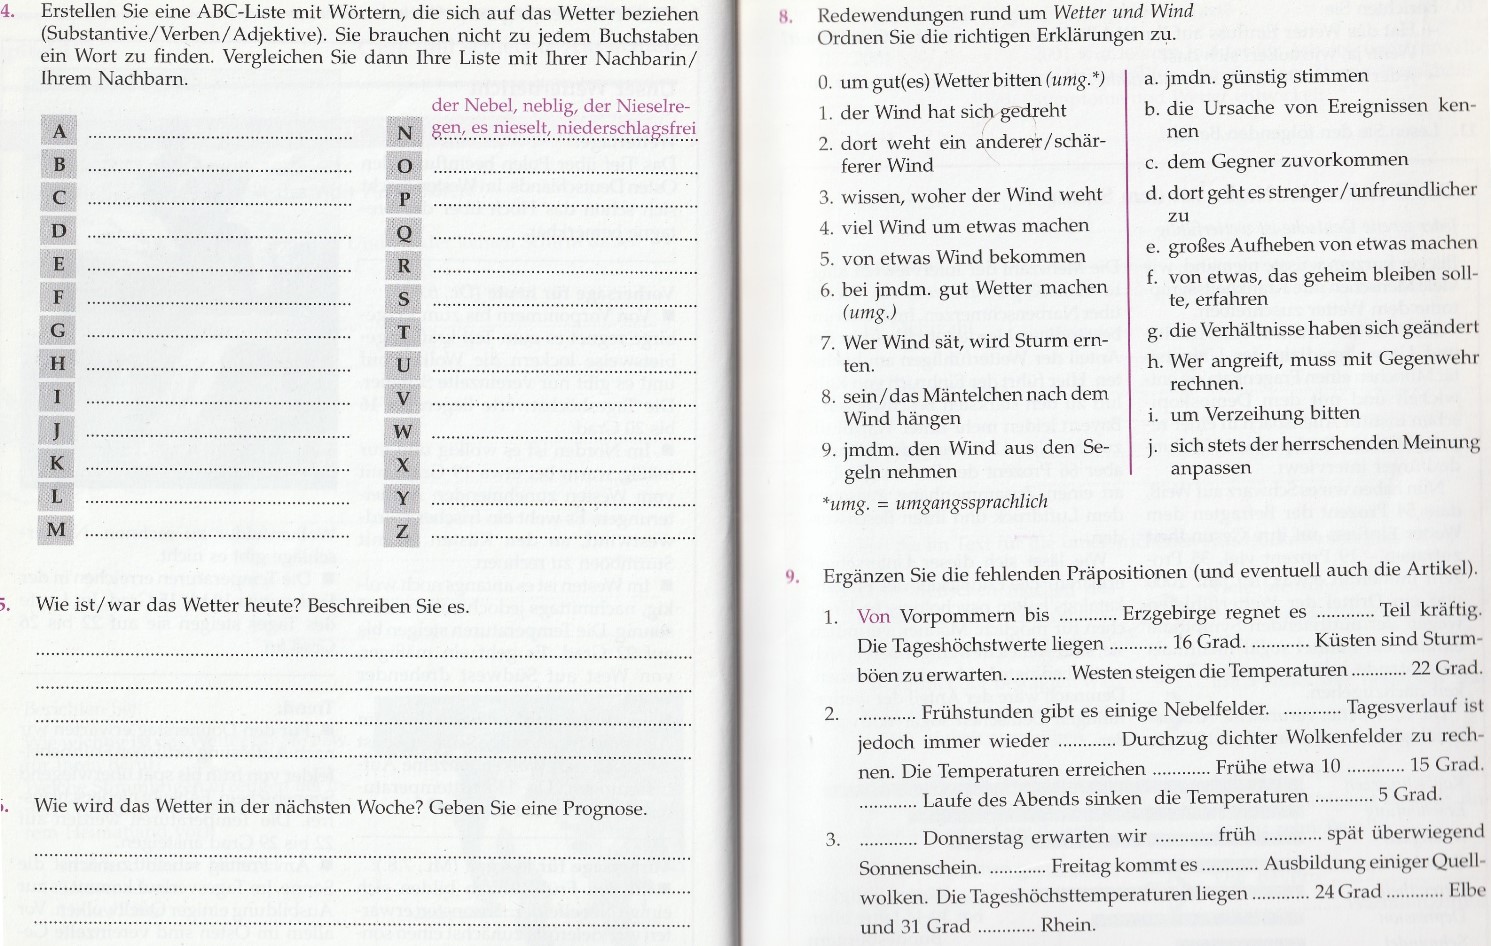 4. Erstellen Sie eine ABC-Liste mit Wörtern, die sich auf das Wetter beziehen
(Substantive/Verben/Adjektive). Sie brauchen nicht zu jedem Buchstaben
ein Wort zu finden. Vergleichen Sie dann Ihre Liste mit Ihrer Nachbarin/
Ihrem Nachbarn.
der Nebel, neblig, der Nieselre-
gen, es nieselt, niederschlagsfrei
A
B
C
D
E
F
G
H
I
J
K
L
M
N
O
P
Q
R
S
T
U
V
W
X
Y
Z
5. Wie ist/war das Wetter heute? Beschreiben Sie es.
Wie wird das Wetter in der nächsten Woche? Geben Sie eine Prognose.
8. Redewendungen rund um Wetter und Wind
Ordnen Sie die richtigen Erklärungen zu.
0. um gut(es) Wetter bitten (umg.*)
1. der Wind hat sich gedreht
2. dort weht ein anderer/schär-
ferer Wind
3. wissen, woher der Wind weht
4. viel Wind um etwas machen
5. von etwas Wind bekommen
6. bei jmdm. gut Wetter machen
(umg.)
7. Wer Wind sät, wird Sturm ern-
ten.
8. sein/das Mäntelchen nach dem
Wind hängen
9. jmdm. den Wind aus den Se-
geln nehmen
*umg. = umgangssprachlich
a. jmdn. günstig stimmen
b. die Ursache von Ereignissen ken-
nen
c. dem Gegner zuvorkommen
d. dort geht es strenger/unfreundlicher
zu
e. großes Aufheben von etwas machen
f. von etwas, das geheim bleiben soll-
te, erfahren
g. die Verhältnisse haben sich geändert
h. Wer angreift, muss mit Gegenwehr
rechnen.
i. um Verzeihung bitten
j. sich stets der herrschenden Meinung
anpassen
9. Ergänzen Sie die fehlenden Präpositionen (und eventuell auch die Artikel).
1. Von Vorpommern bis ........... Erzgebirge regnet es ........... Teil kräftig.
Die Tageshöchstwerte liegen ........... 16 Grad. ........... Küsten sind Sturm-
böen zu erwarten. ........... Westen steigen die Temperaturen ........... 22 Grad.
2. ........... Frühstunden gibt es einige Nebelfelder. ........... Tagesverlauf ist
jedoch immer wieder ........... Durchzug dichter Wolkenfelder zu rech-
nen. Die Temperaturen erreichen ........... Frühe etwa 10 ........... 15 Grad.
........... Laufe des Abends sinken die Temperaturen ........... 5 Grad.
3. ........... Donnerstag erwarten wir ........... früh ........... spät überwiegend
Sonnenschein. ........... Freitag kommt es ........... Ausbildung einiger Quell-
wolken. Die Tageshöchsttemperaturen liegen ........... 24 Grad ........... Elbe
und 31 Grad ........... Rhein.